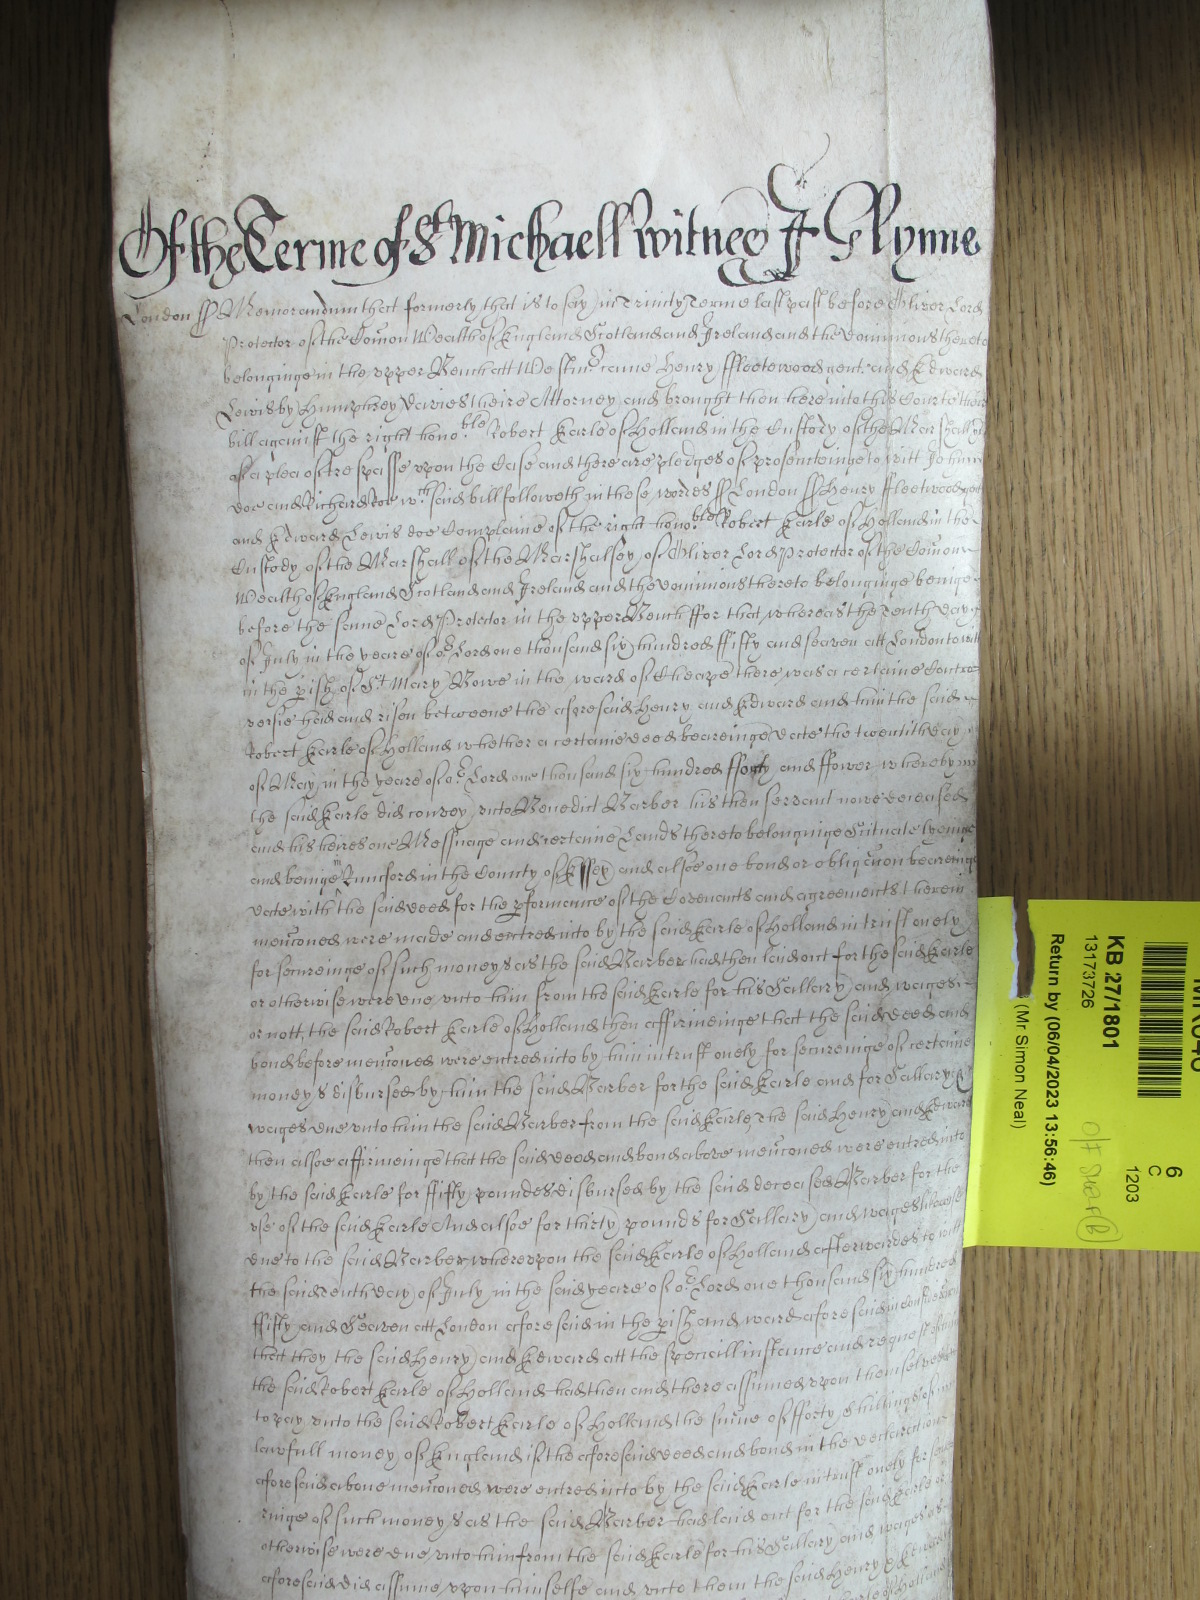 Of the Terme of St Michaell Witnes J Glynne
London ss Memorandum that formerly that is to say in Trinity Terme last past before Oliver Lord
Protector of the Comon Wealth of England Scotland and Ireland and the Dominions thereto
belonginge in the upper Bench att Westmr came Henry ffleetewood gent and Edward
Lewis by Humphrey Davies theire Attorney and brought then here into this Court theire
bill against the right honoble Robert Earle of Holland in the Custody of the Marshall &c
of a plea of trespasse upon the Case and there are pledges of prosecutinge to witt John
doe and Richard Roe wch said bill followeth in these wordes ss London ss Henry ffleetwood gent
and Edward Lewis doe Complaine of the right honoble Robert Earle of Holland in the
Custody of the Marshall of the Marshalsey of Oliver Lord Protector of the Comon
Wealth of England Scotland and Ireland and the Dominions thereto belonginge beinge
before the same Lord Protector in the upper Bench ffor that whereas the tenth day
of July in the yeare of or Lord one thousand six hundred ffifty and seaven att London to witt
in the pish of St Mary Bowe in the ward of Cheape there was a certaine Contro
versie had and risen betweene the aforesaid Henry and Edward and him the said
Robert Earle of Holland whether a certaine deed beareinge date the twentith day
of May in the yeare of or Lord one thousand six hundred fforty and ffower whereby
the said Earle did convey unto Benedict Barber his then servant nowe deceased
and his heires one Messuage and certaine Lands thereto belonginge Scituate lyeinge
and beinge in Rumford in the County of Essex and alsoe one bond or obligacon beareinge
date with the said deed for the pformance of the Covenants and agreements therein
menconed were made and entred into by the said Earle of Holland in trust onely
for secureinge of such moneys as the said Barber had then laid out for the said Earle
or otherwise were due unto him from the said Earle for his Sallary and wages
or nott, the said Robert Earle of Holland then affirmeinge that the said deed and
bond before menconed were entred into by him in trust onely for secureinge of certaine
moneys disbursed by him the said Barber for the said Earle and for Sallary &
wages due unto him the said Barber from the said Earle, The said Henry and Edward
then alsoe affirmeinge that the said deed and bond above menconed were entred into
by the said Earle for ffifty poundes disbursed by the said deceased Barber for the
use of the said Earle And alsoe for thirty pounds for Sallary and wages likewise
due to the said Barber whereupon the said Earle of Holland afterwardes to witt
the said tenth day of July in the said yeare of or Lord one thousand six hundred
ffifty and Seaven att London aforesaid in the pish and ward aforesaid in consideracon
that they the said Henry and Edward att the speciall instance and request of him
the said Robert Earle of Holland had then and there assumed upon themselves
to pay unto the said Robert Earle of Holland the sume of fforty shillings of
lawfull money of England if the aforesaid deed and bond in the declaration
aforesaid above menconed were entred into by the said Earle in trust onely for secu
ringe of such moneys as the said Barber had laid out for the said Earle or
otherwise were due unto him from the said Earle for his Sallary and wages as
aforesaid did assume upon himselfe and unto them the said Henry & Edward
KB 27/1801
13173726
Return by (06/04/2023 13:56:46)
(Mr Simon Neal)
6
C
1203